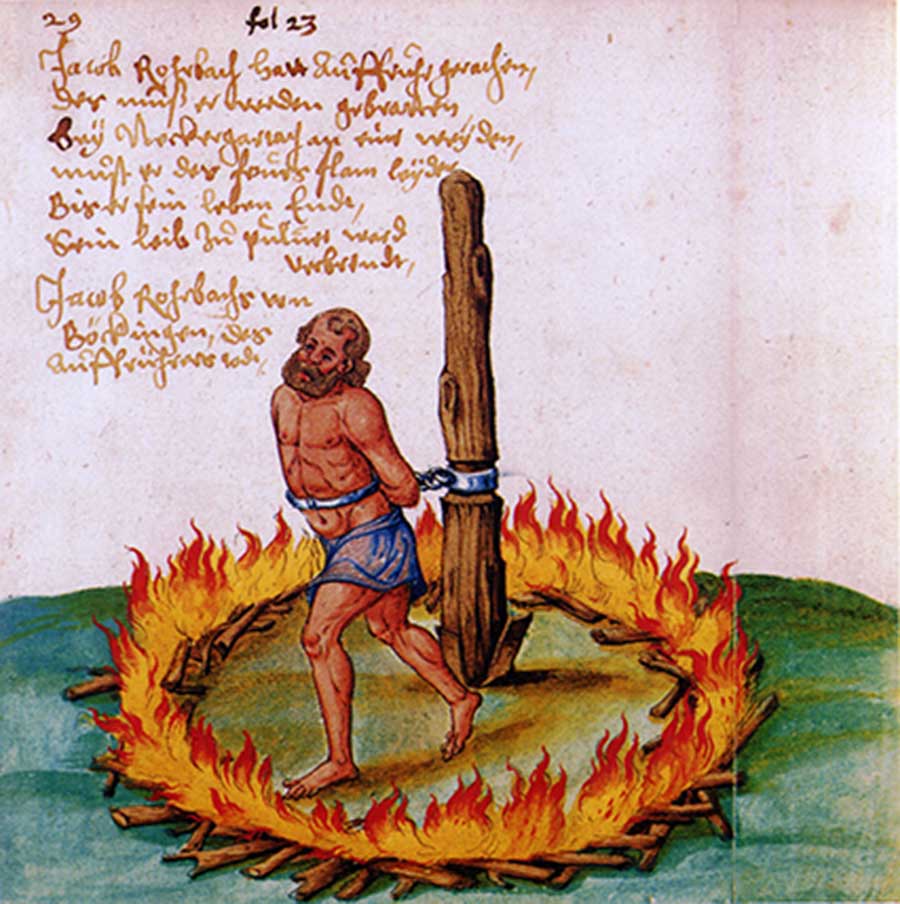 29 fol 23
Jacob Rohrbach hatt Auffruhr
der muß er werden gebratten
Bey Neckergartach an einer weyden,
must er des feurs flam leyden
Bis er sein leben Endt,
Sein leib zu puluer ward
verbrendt,
Jacob Rohrbachs von
Böckingen, des
Auffrürers todt,